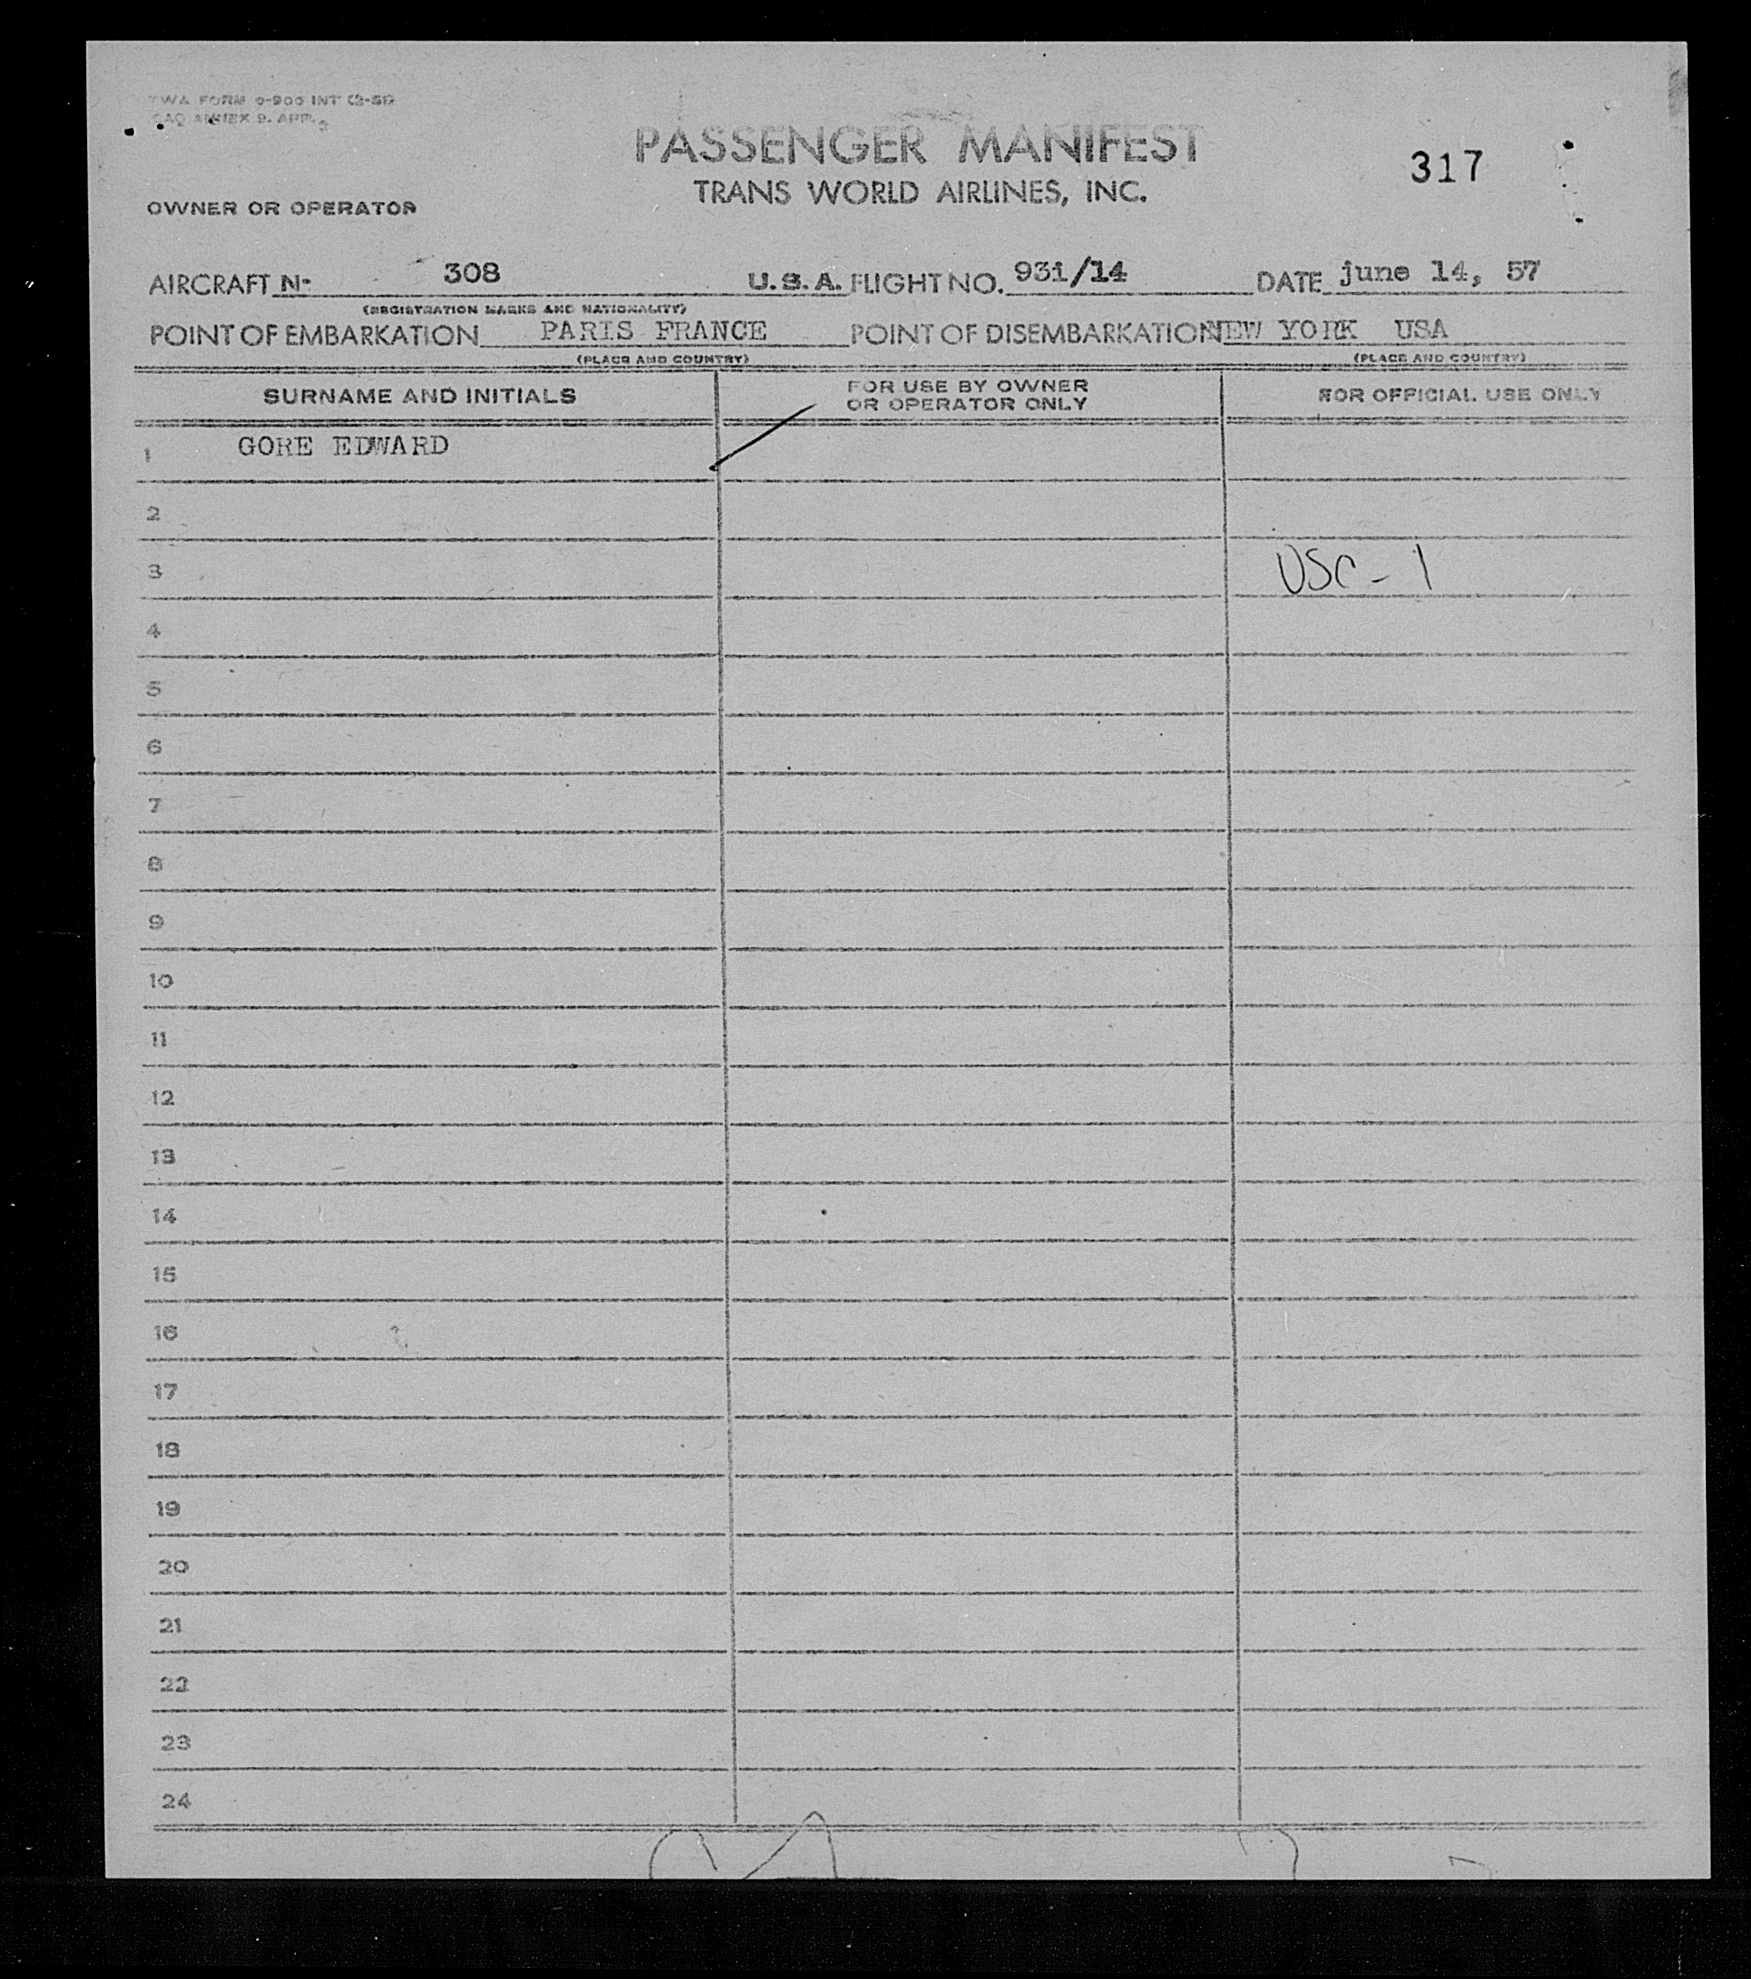 TWA FORM 0-900 INT (2-51)
ICAO ANNEX 9. APP. 3
PASSENGER MANIFEST
317
TRANS WORLD AIRLINES, INC.
OWNER OR OPERATOR
AIRCRAFT N- 308 U.S.A. FLIGHT NO. 931/14 DATE june 14, 57
(REGISTRATION MARKS AND NATIONALITY)
POINT OF EMBARKATION PARIS FRANCE POINT OF DISEMBARKATION NEW YORK USA
(PLACE AND COUNTRY) (PLACE AND COUNTRY)
SURNAME AND INITIALS
FOR USE BY OWNER
OR OPERATOR ONLY
FOR OFFICIAL USE ONLY
1 GORE EDWARD
2
3 USC - 1
4
5
6
7
8
9
10
11
12
13
14
15
16
17
18
19
20
21
22
23
24